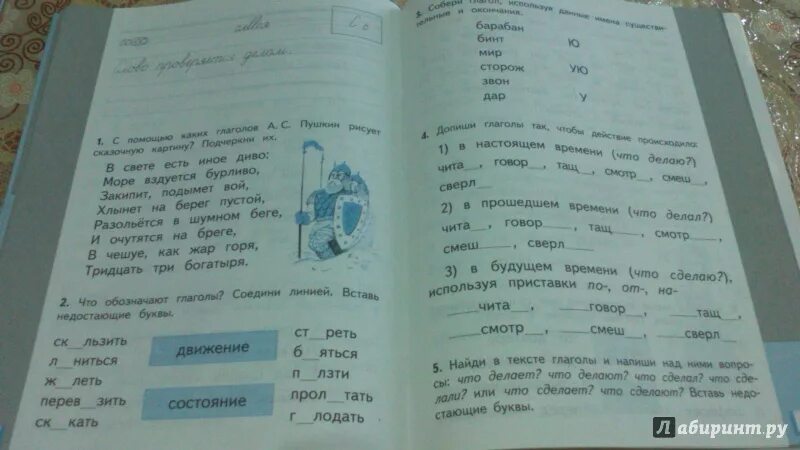 Со
слово проверяется делом.
1. С помощью каких глаголов А. С. Пушкин рисует
сказочную картину? Подчеркни их.
В свете есть иное диво:
Море вздуется бурливо,
Закипит, подымет вой,
Хлынет на берег пустой,
Разольётся в шумном беге,
И очутятся на бреге,
В чешуе, как жар горя,
Тридцать три богатыря.
2. Что обозначают глаголы? Соедини линией. Вставь
недостающие буквы.
ск__льзить
л__ниться
ж__леть
перев__зить
ск__кать
движение
состояние
ст__реть
б__яться
п__лзти
прол__тать
г__лодать
3. Собери глагол, используя данные имена существи-
тельные и окончания.
барабан
бинт
мир
сторож
звон
дар
Ю
УЮ
У
4. Допиши глаголы так, чтобы действие происходило:
1) в настоящем времени (что делаю?)
чита__, говор__, тащ__, смотр__, смеш__,
сверл__
2) в прошедшем времени (что делал?)
чита__, говор__, тащ__, смотр__,
смеш__, сверл__
3) в будущем времени (что сделаю?),
используя приставки по-, от-, на-
__чита__, __говор__, __тащ__,
__смотр__, __смеш__, __сверл__
5. Найди в тексте глаголы и напиши над ними вопро-
сы: что делает? что делают? что сделал? что сде-
лали? или что сделает? что сделают? Вставь недо-
стающие буквы.
Лабиринт.ру